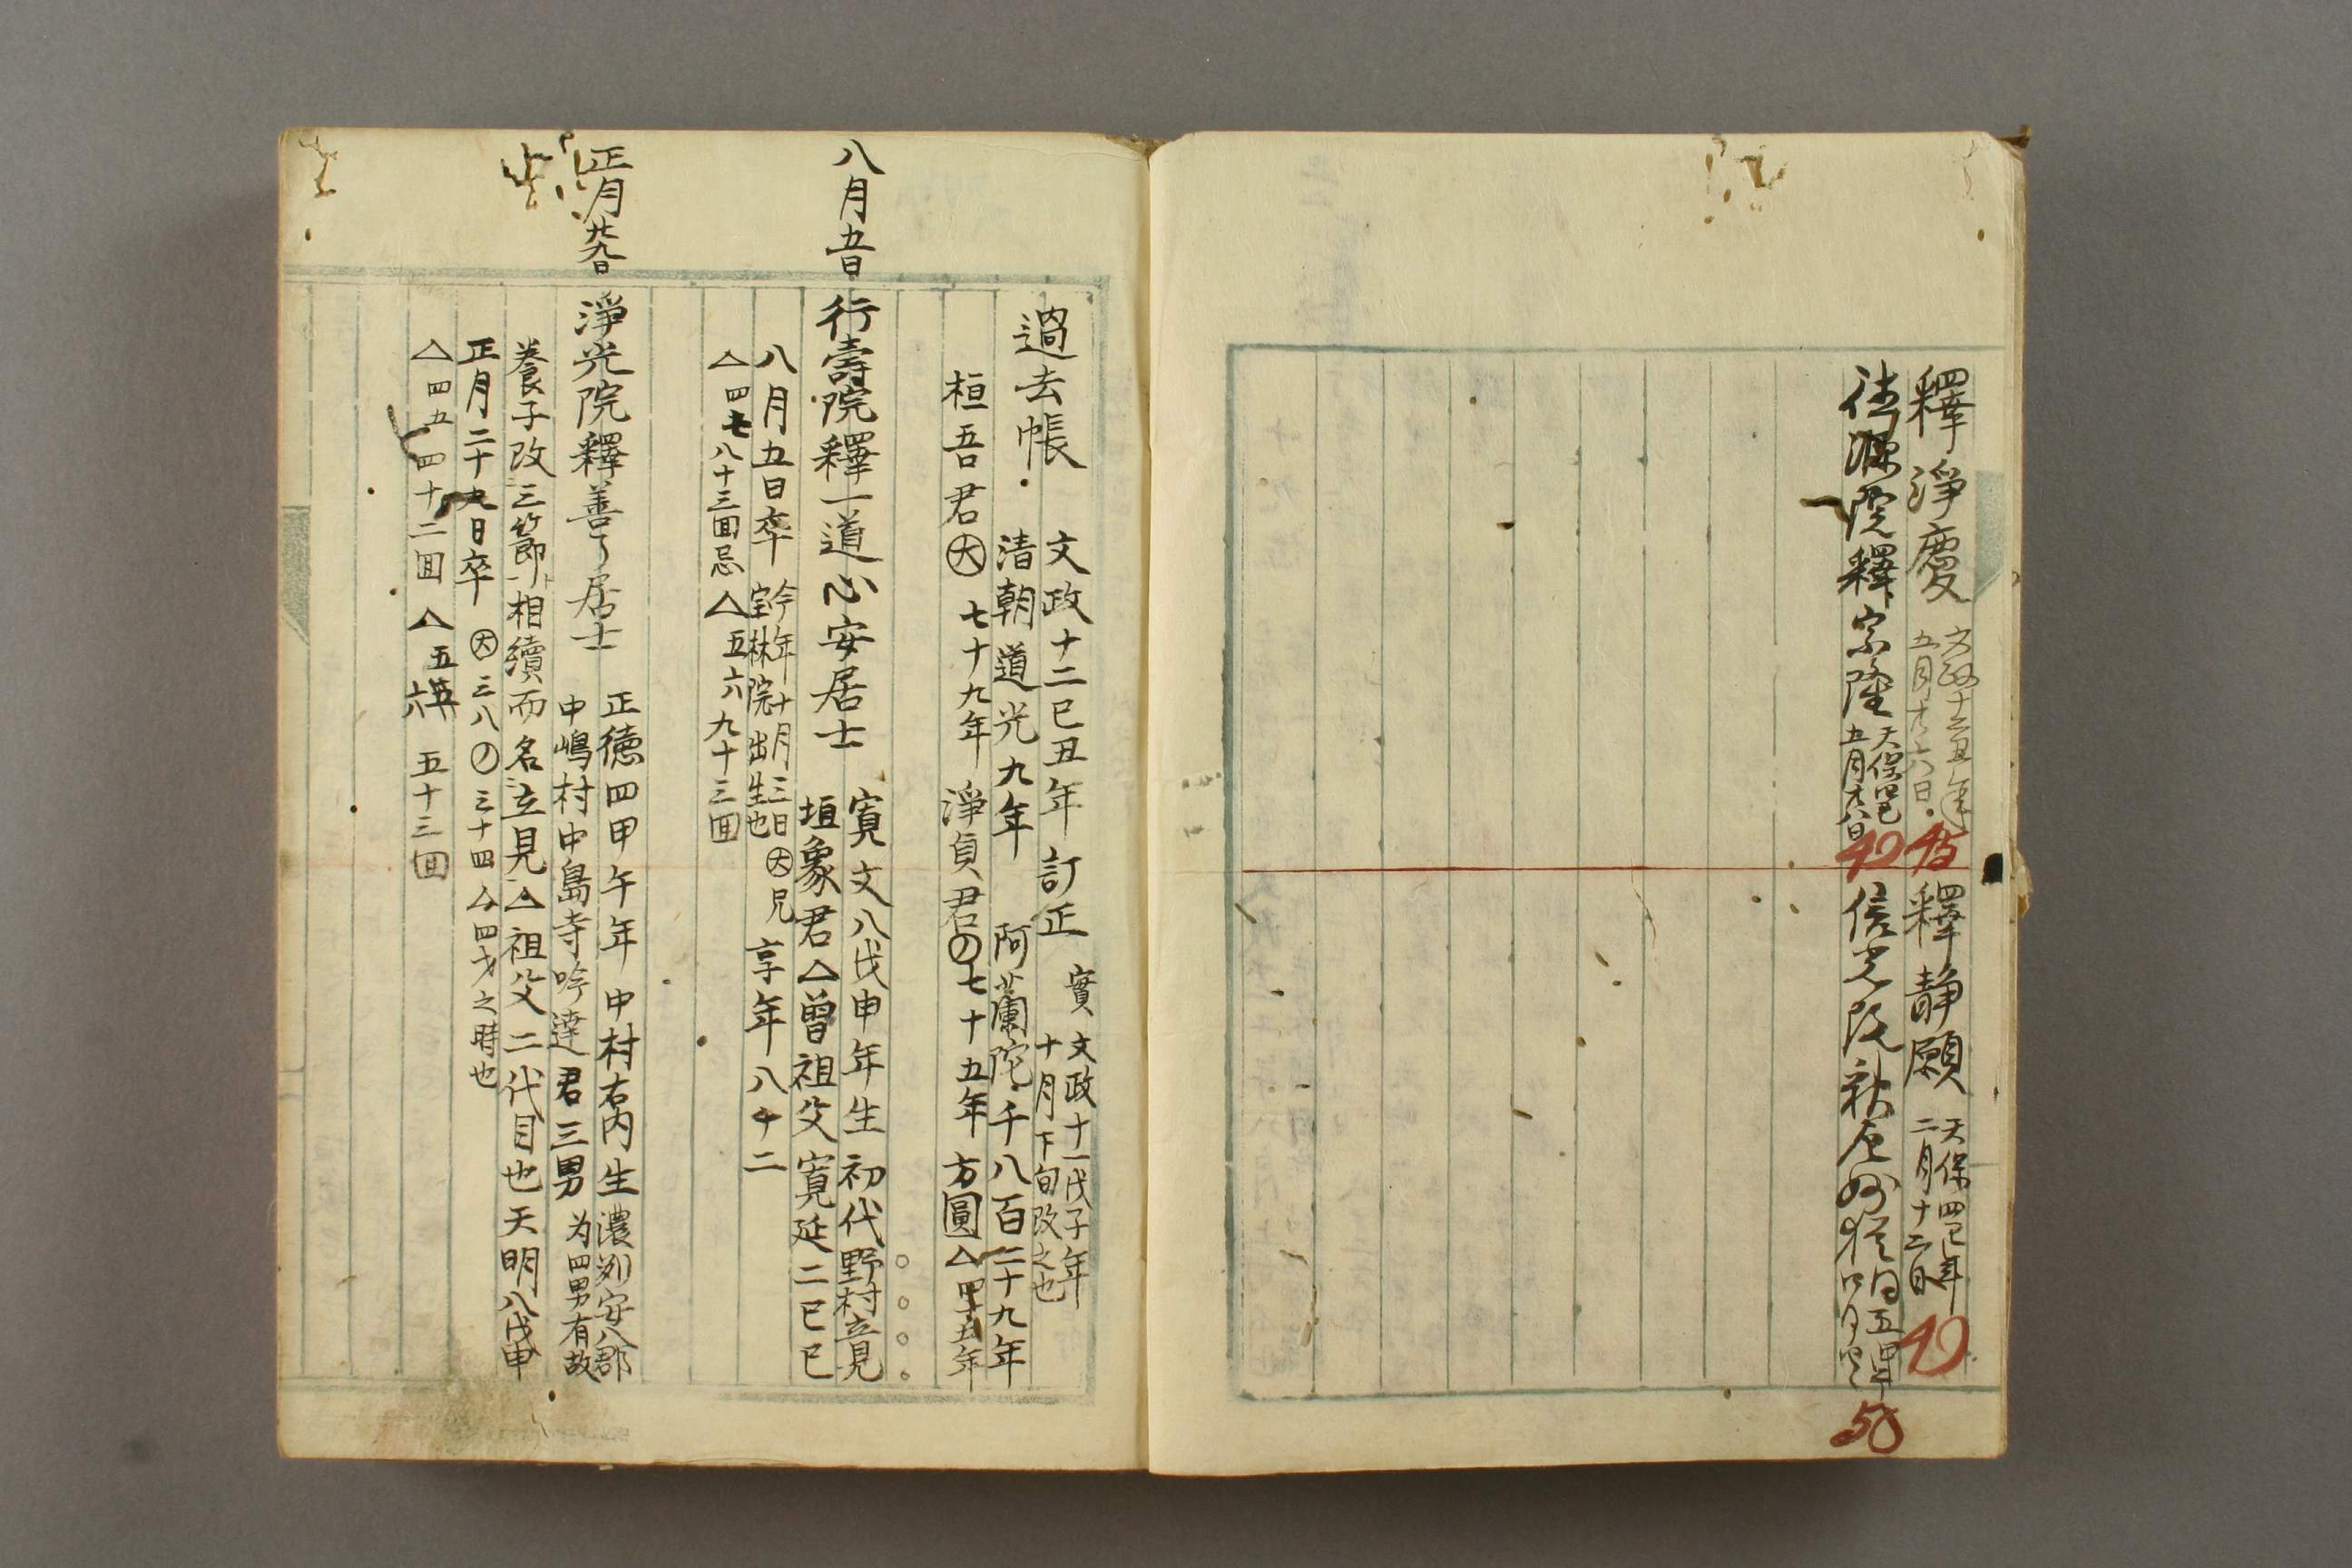 釋淨慶
五月廿六日
40
釋静願
天保四巳年
二月十二日
40
院釋宗隆
天保四巳
五月廿八日
40
50
過去帳
文政十二已丑年訂正
實文政十一戊子年
十月下旬改之也
清朝道光九年
阿蘭陀千八百二十九年
桓吾君㊅七十九年
淨負君の七十五年
方圓△
八月五日
行壽院釋一道心安居士
寛文八戊申年生初代野村立見
垣象君△曽祖父寛延二已巳
八月五日卒
今年十月三日
宝林院出生也
大兄
享年八十二
△四七八十三回忌△五六九十三回
正月廿九日
淨光院釋善了居士
正徳四甲午年中村右内生
濃州安八郡
中嶋村中島寺吟達君三男
为四男有故
養子改三節相續而名立見△祖父二代目也天明八戊申
正月二十九日卒
大三八の三十四△四才之時也
△四五四十二回△五六五十三回